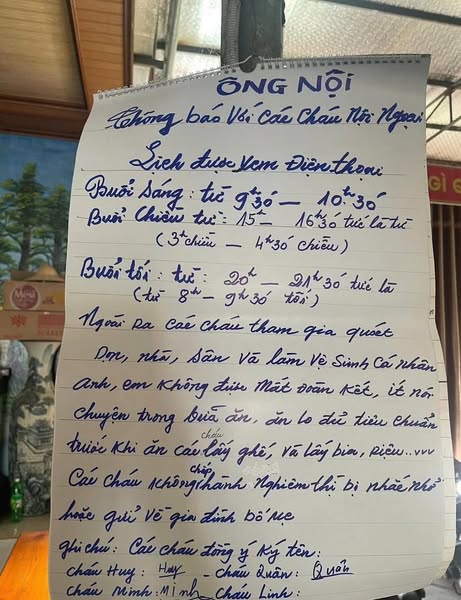 ÔNG NỘI
Thông báo với các cháu Nội Ngoại
Lịch được xem Điện thoại
Buổi sáng: từ 9h30' — 10h30'
Buổi chiều từ: 15h — 16h30' tức là từ
(3h chiều — 4h30' chiều)
Buổi tối: từ: 20h — 21h30' tức là
(từ 8h — 9h30' tối)
Ngoài ra các cháu tham gia quét
Dọn, nhà, sân và làm vệ sinh cá nhân
anh, em không được mất đoàn kết, ít nói
chuyện trong bữa ăn, ăn lo đủ tiêu chuẩn
trước khi ăn các cháu lấy ghế, và lấy bia, rượu..vvv
Các cháu không chấp hành nghiêm thì bị nhắc nhở
hoặc gửi về gia đình bố mẹ
ghi chú: Các cháu đồng ý ký tên:
cháu Huy: Huy - cháu Quân: Quân
cháu Minh: Minh cháu Linh: